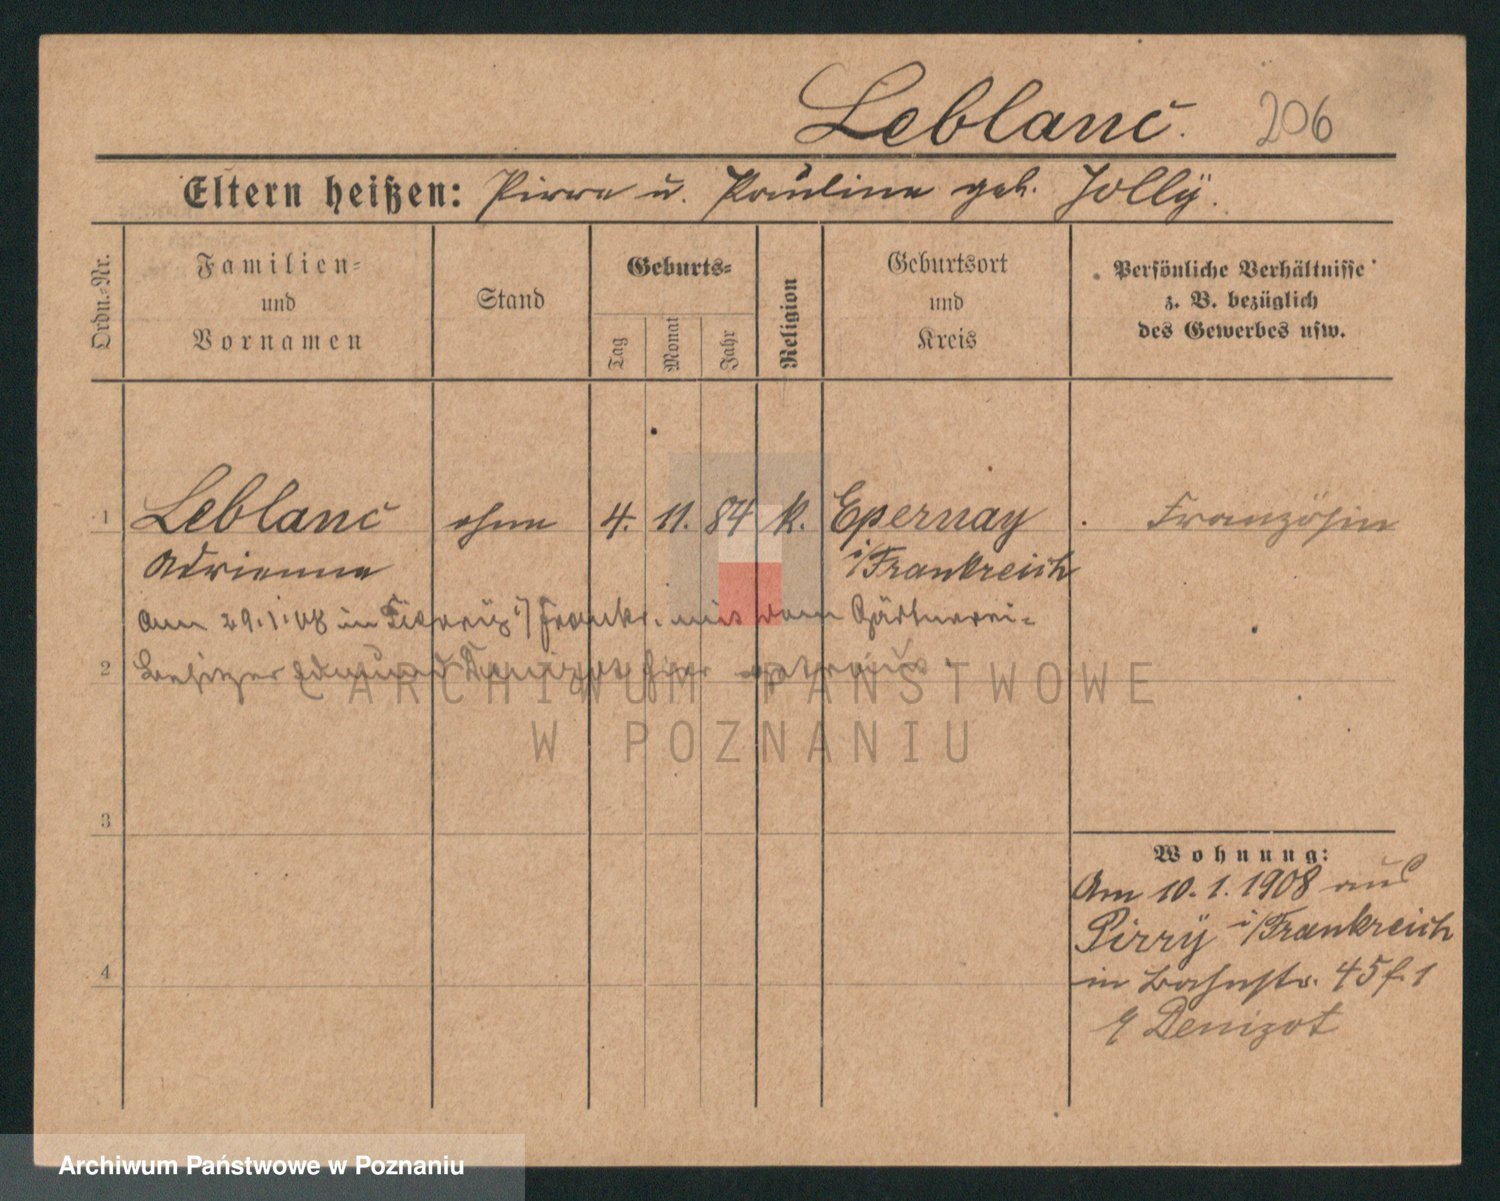 Leblanc. 206
Eltern heißen: Pirre u. Pauline geb. Jolly.
Ordn.-Nr.
Familien-
und
Vornamen
Stand
Geburts-
Tag
Monat
Jahr
Religion
Geburtsort
und
Kreis
Persönliche Verhältnisse
z. B. bezüglich
des Gewerbes usw.
1 Leblanc ohne 4. 11. 84 k. Epernay Französin
Adrienne i/Frankreich
Am 29.1.08 in i/Frankr. mit dem Gärtnerei-
2 besitzer Edmund Denizot hier
3
4
Wohnung:
Am 10.1.1908 aus
Pirry i/Frankreich
in Bahnstr. 45 f. 1
Denizot
ARCHIWUM PAŃSTWOWE
W POZNANIU
Archiwum Państwowe w Poznaniu